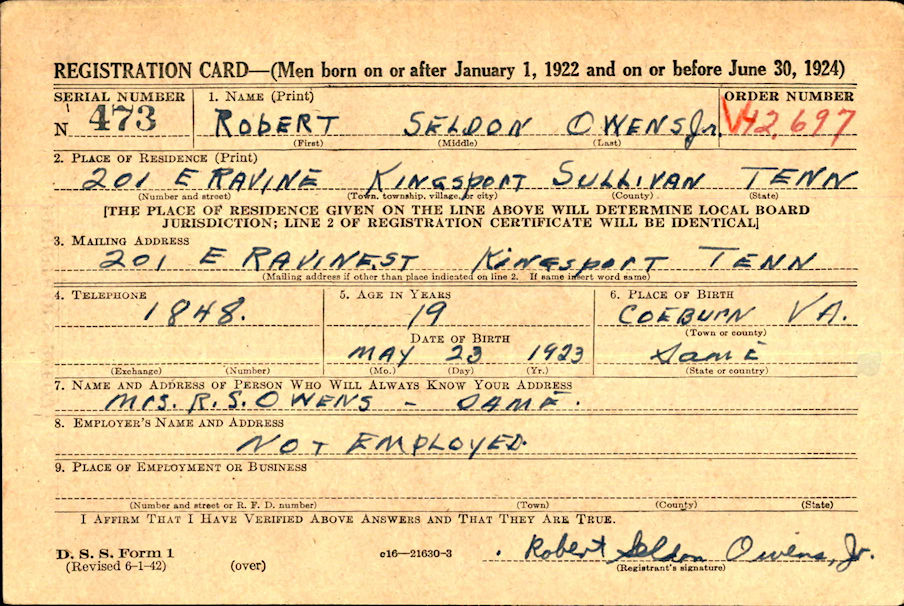 REGISTRATION CARD—(Men born on or after January 1, 1922 and on or before June 30, 1924)
SERIAL NUMBER 1. NAME (Print) ORDER NUMBER
N 473 ROBERT SELDON OWENS Jr. V42,697
(First) (Middle) (Last)
2. PLACE OF RESIDENCE (Print)
201 E RAVINE KINGSPORT SULLIVAN TENN
(Number and street) (Town, township, village, or city) (County) (State)
[THE PLACE OF RESIDENCE GIVEN ON THE LINE ABOVE WILL DETERMINE LOCAL BOARD
JURISDICTION; LINE 2 OF REGISTRATION CERTIFICATE WILL BE IDENTICAL]
3. MAILING ADDRESS
201 E RAVINE ST KINGSPORT TENN
(Mailing address if other than place indicated on line 2. If same insert word same)
4. TELEPHONE 5. AGE IN YEARS 6. PLACE OF BIRTH
1848. 19 COEBURN VA.
DATE OF BIRTH (Town or county)
MAY 23 1923 Same
(Exchange) (Number) (Mo.) (Day) (Yr.) (State or country)
7. NAME AND ADDRESS OF PERSON WHO WILL ALWAYS KNOW YOUR ADDRESS
MRS. R.S. OWENS - SAME.
8. EMPLOYER'S NAME AND ADDRESS
NOT EMPLOYED.
9. PLACE OF EMPLOYMENT OR BUSINESS
(Number and street or R. F. D. number) (Town) (County) (State)
I AFFIRM THAT I HAVE VERIFIED ABOVE ANSWERS AND THAT THEY ARE TRUE.
D. S. S. Form 1 c16—21630-3 Robert Seldon Owens, Jr.
(Revised 6-1-42) (over) (Registrant's signature)